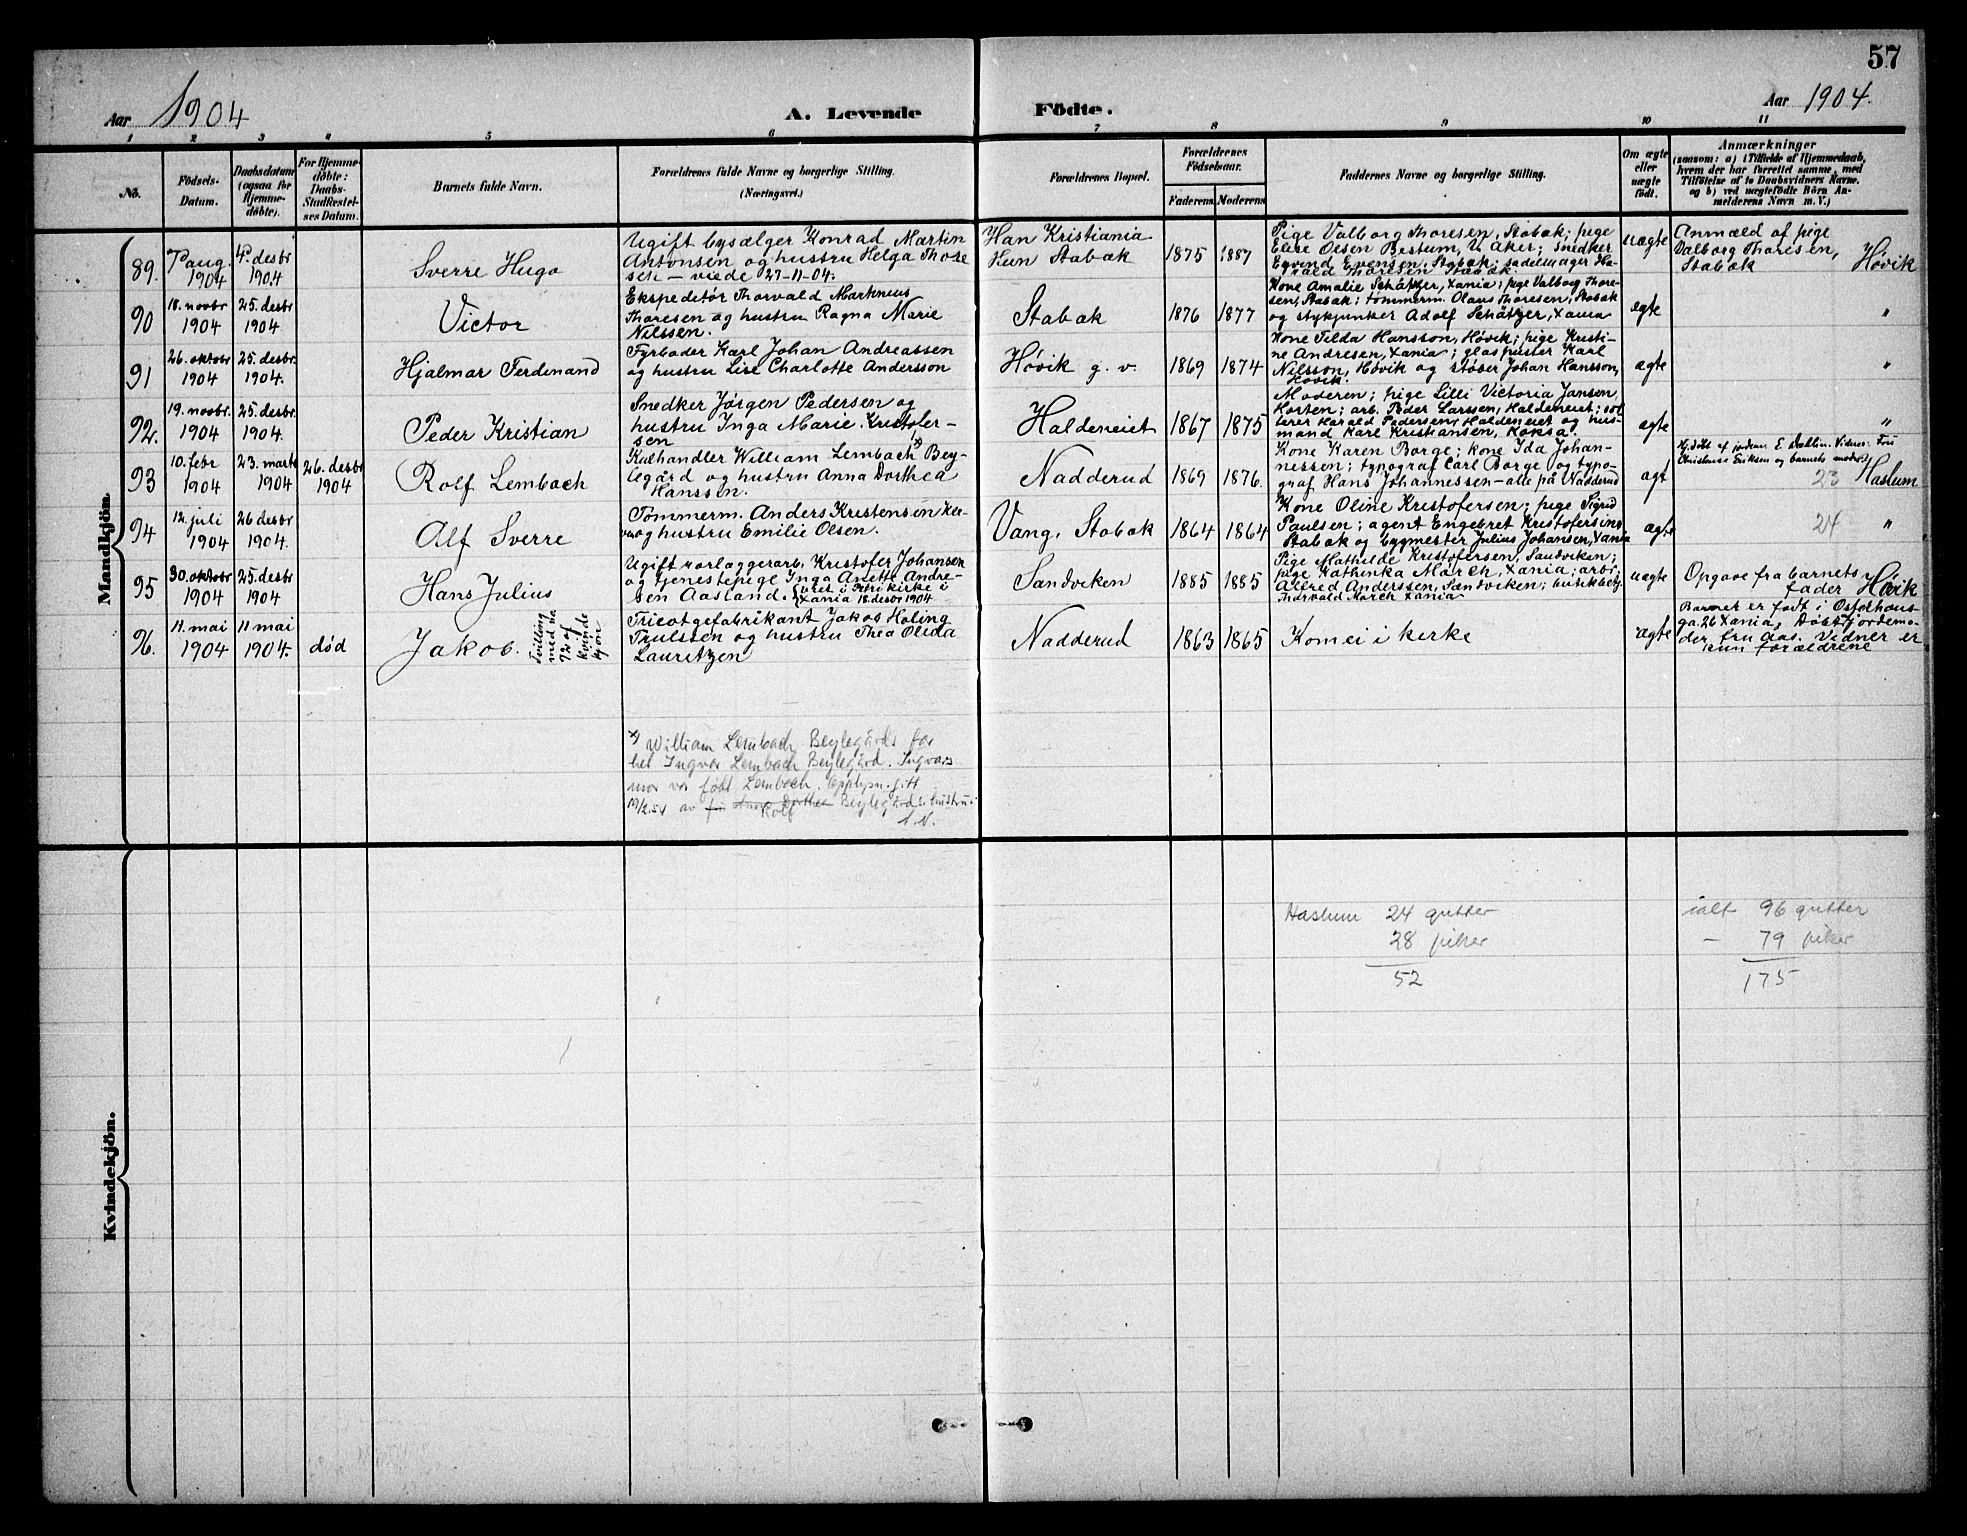 57
Aar 1904
A. Levende Födte.
Aar 1904.
1 2 3 4 5 6 7 8 9 10 11
No.
Födsels-
Datum.
Daabsdatum
(ogsaa for
Hjemme-
döbte).
For Hjemme-
döbte:
Daabs-
Stadfæstel-
ses Datum.
Barnets fulde Navn.
Forældrenes fulde Navne og borgerlige Stilling.
(Næringsvei.)
Forældrenes Bopæl.
Forældrenes
Födselsaar.
Faderens Moderens
Faddernes Navne og borgerlige Stilling.
Om ægte
eller
uægte
födt.
Anmærkninger
(saasom: a) i Tilfælde af Hjemmedaab,
hvem der har forrettet samme, med
Tilföielse af to Daabsvidners Navne,
og b) ved uægtefödte Börn An-
melderens Navn m. V.)
Mandkjön.
89.
7 aug.
1904
4. desbr
1904.
Sverre Hugo
Ugift bysælger Konrad Martin
Antonsen og hustru Helga Thore
sen — viede 27-11-04.
Han Kristiania
Hun Stabæk
1875
1887
Pige Valborg Thoresen, Stabæk; pige
Elise Olsen Bestum, V. Aker; snedker
Eyvind Evensen, Stabæk; sadelmager Ha-
rald Thoresen Stabæk.
uægte
Anmeld af pige
Valborg Thoresen,
Stabæk
Høvik
90
18. novbr
1904
25. desbr
1904.
Victor
Ekspeditør Thorvald Martinius
Thoresen og hustru Ragna Marie
Nilssen.
Stabæk
1876
1877
Kone Amalie Schätzer, Xania; pige Valborg Thore-
sen, Stabæk; tømmerm. Olaus Thoresen, Stabæk
og stykjunker Adolf Schätzer, Xania
ægte
"
91
26. oktobr
1904
25. desbr.
1904.
Hjalmar Ferdinand
Fyrbøder Karl Johan Andreassen
og hustru Lise Charlotte Andersson
Høvik g. v.
1869
1874
Kone Tilda Hansson, Høvik; pige Kristi-
ne Andresen, Xania; glaspuster Karl
Nilsson, Høvik og støber Johan Hansson,
Høvik.
ægte
"
92.
19. novbr.
1904
25. desbr.
1904.
Peder Kristian
Snedker Jørgen Pedersen og
hustru Inga Marie Kristofer-
sen
Haldeneiet
1867
1875
Moderen; pige Lilli Victoria Jansen,
Horten; arb. Peder Larssen, Haldeneiet; sol-
berer Harald Pedersen, Haldeneiet og hus-
mand Karl Kristiansen, Koksa.
ægte
"
93
10. febr
1904
23. marts
1904
26. desbr
1904
Rolf Lembach
Kulhandler William Lembach x) Bey-
legård og hustru Anna Dorthea
Hanssen.
Nadderud
1869
1876.
Kone Karen Borge; kone Ida Johan-
nessen; typograf Carl Borge og typo-
graf Hans Johannessen – alle på Nadderud
ægt
Hj.døbt af jordm. E. Dæhlin. Vidner: Fru
Christiane Eriksen og barnets moder
23
Haslum
94
12. juli
1904
26 desbr
1904.
Alf Sverre
Tømmerm. Anders Kristensen
og hustru Emilie Olsen.
Vang, Stabæk
1864
1864
Kone Oline Kristofersen; pige Sigrid
Paulsen; agent Engebret Kristofersen,
Stabæk og bygmester Julius Johansen, Xania
ægte
24
"
95
30. oktobr
1904
25. desbr
1904
Hans Julius
Ugift forlæggerarb. Kristofer Johansen
og tjenestepige Inga Anette Andre-
sen Aasland. Xania 18. desbr 1904
Sandviken
1885
1885
Pige Mathilde Kristofersen, Sandviken;
pige Kathinka Mørch, Xania; arb.
Alfred Anderssen, Sandviken;
Thorvald Mørch Xania
uægte
Opgave fra barnets
fader
Høvik
96.
11. mai
1904
11 mai
1904.
død
Jakob.
Tvilling
med no
72 af
kvinde
kjøn
Tricotgefabrikant Jakob Holing
Trulssen og hustru Thea Olida
Lauritzen
Nadderud
1863
1865
Kom ei i kirke
ægte
Barnet er født i Osterhaus-
ga. 26 Xania. Døbt jordemo-
der, fru Aas. Vidner er
kun forældrene
x) William Lembach Beylegårds far
het Ingvar Lembach Beylegård. Ingvars
mor var født Lembach. Opplysn. gitt
19/2.54 av fru Anna Dorthea Rolf Beylegårds hustru
A.N.
Kvindekjön.
Haslum 24 gutter
28 piker
52
ialt 96 gutter
— 79 piker
175